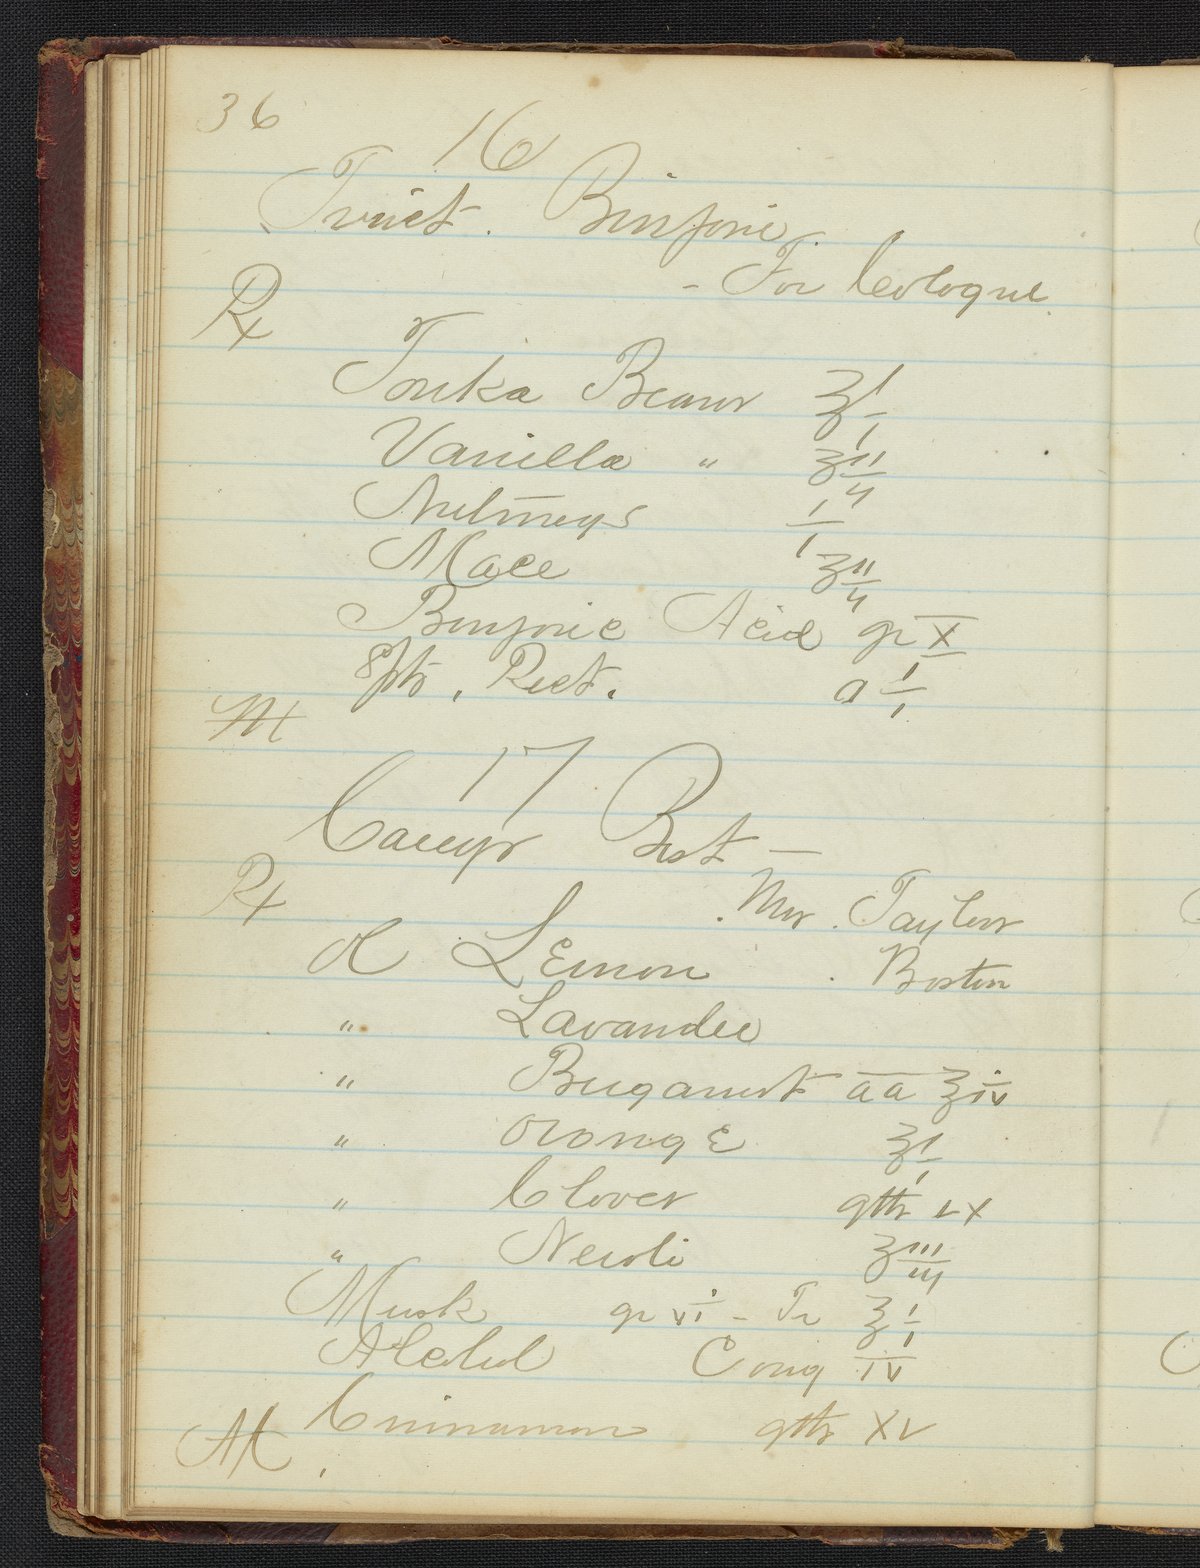 36
16
Tinct. Benzoic
- For Cologne
Rx
Tonka Beans ℥ i
Vanilla " ℥ ii
Nutmegs i
Mace ʒ ii
Benzoic Acid gr X
Spts. Rect. O i
M
17
Best —
Rx
. Mr. Taylor
Ol Lemon . Boston
" Lavandee
" Bergamot āā ℥ iv
" Orange ℥ i
" Clover gtts
" Neroli ʒ iii
Musk gr vi - Tr ℥ i
Alcohol Cong IV
Cinnamon gtts XV
M.